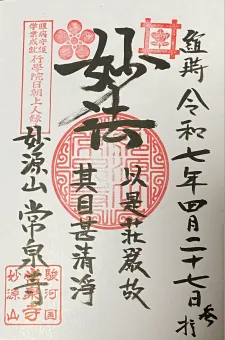 維時 令和七年四月二十七日 参拝
妙法
以是荘厳故
其目甚清浄
妙源山 常泉寺
眼病守護
学業成就
行學院日朝上人縁
駿河国
妙源山
常泉寺